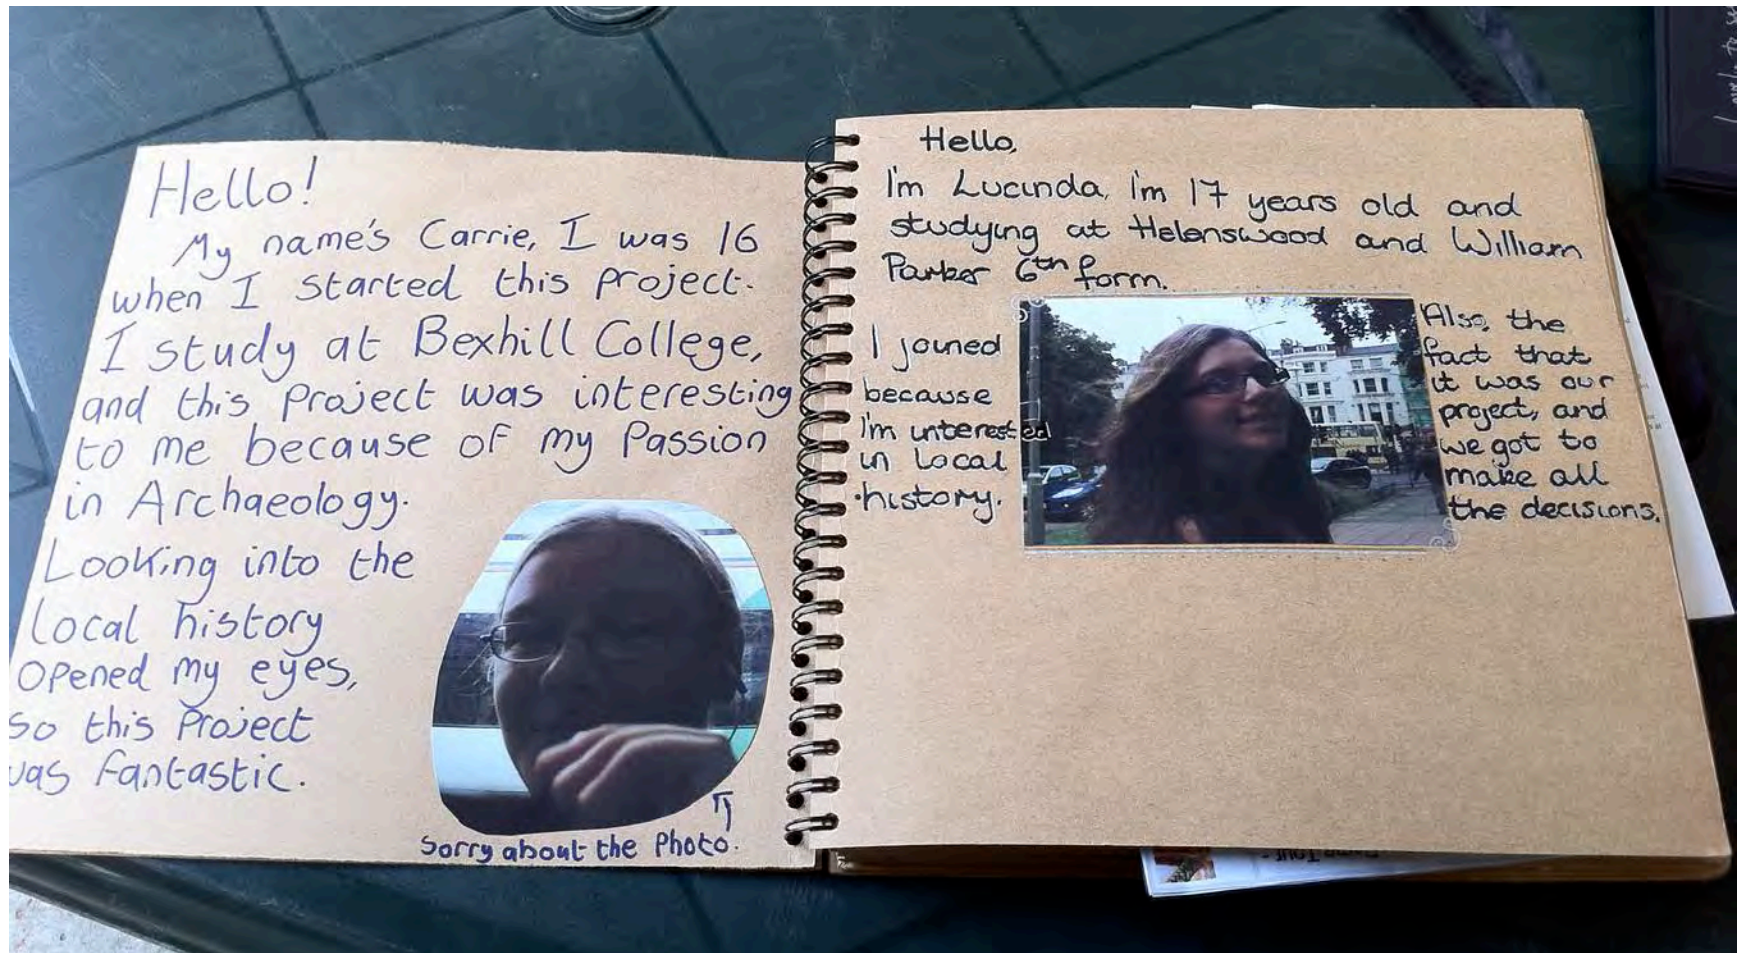 Hello!
My name's Carrie, I was 16
when I started this project.
I study at Bexhill College,
and this project was interesting
to me because of my Passion
in Archaeology.
Looking into the
local history
opened my eyes,
so this Project
was fantastic.
Sorry about the Photo.
Hello,
I'm Lucinda, I'm 17 years old and
studying at Helenswood and William
Parker 6th form.
I joined
because
I'm interested
in local
history.
Also, the
fact that
it was our
project, and
we got to
make all
the decisions.